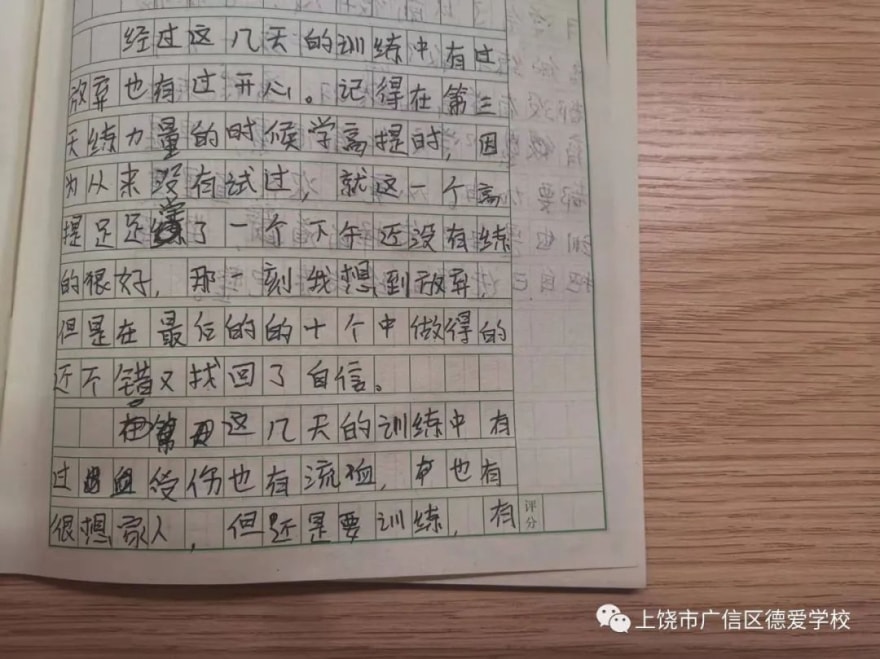 经过这几天的训练中有过
放弃也有过开心。记得在第三
天练力量的时候学高提时，因
为从来没有试过，就这一个高
提足足练了一个下午还没有练
的很好，那一刻我想到放弃，
但是在最后的的十个中做得的
还不错又找回了自信。
在第这几天的训练中有
过受伤也有流血，也有
很想家人，但还是要训练，有
评分
上饶市广信区德爱学校